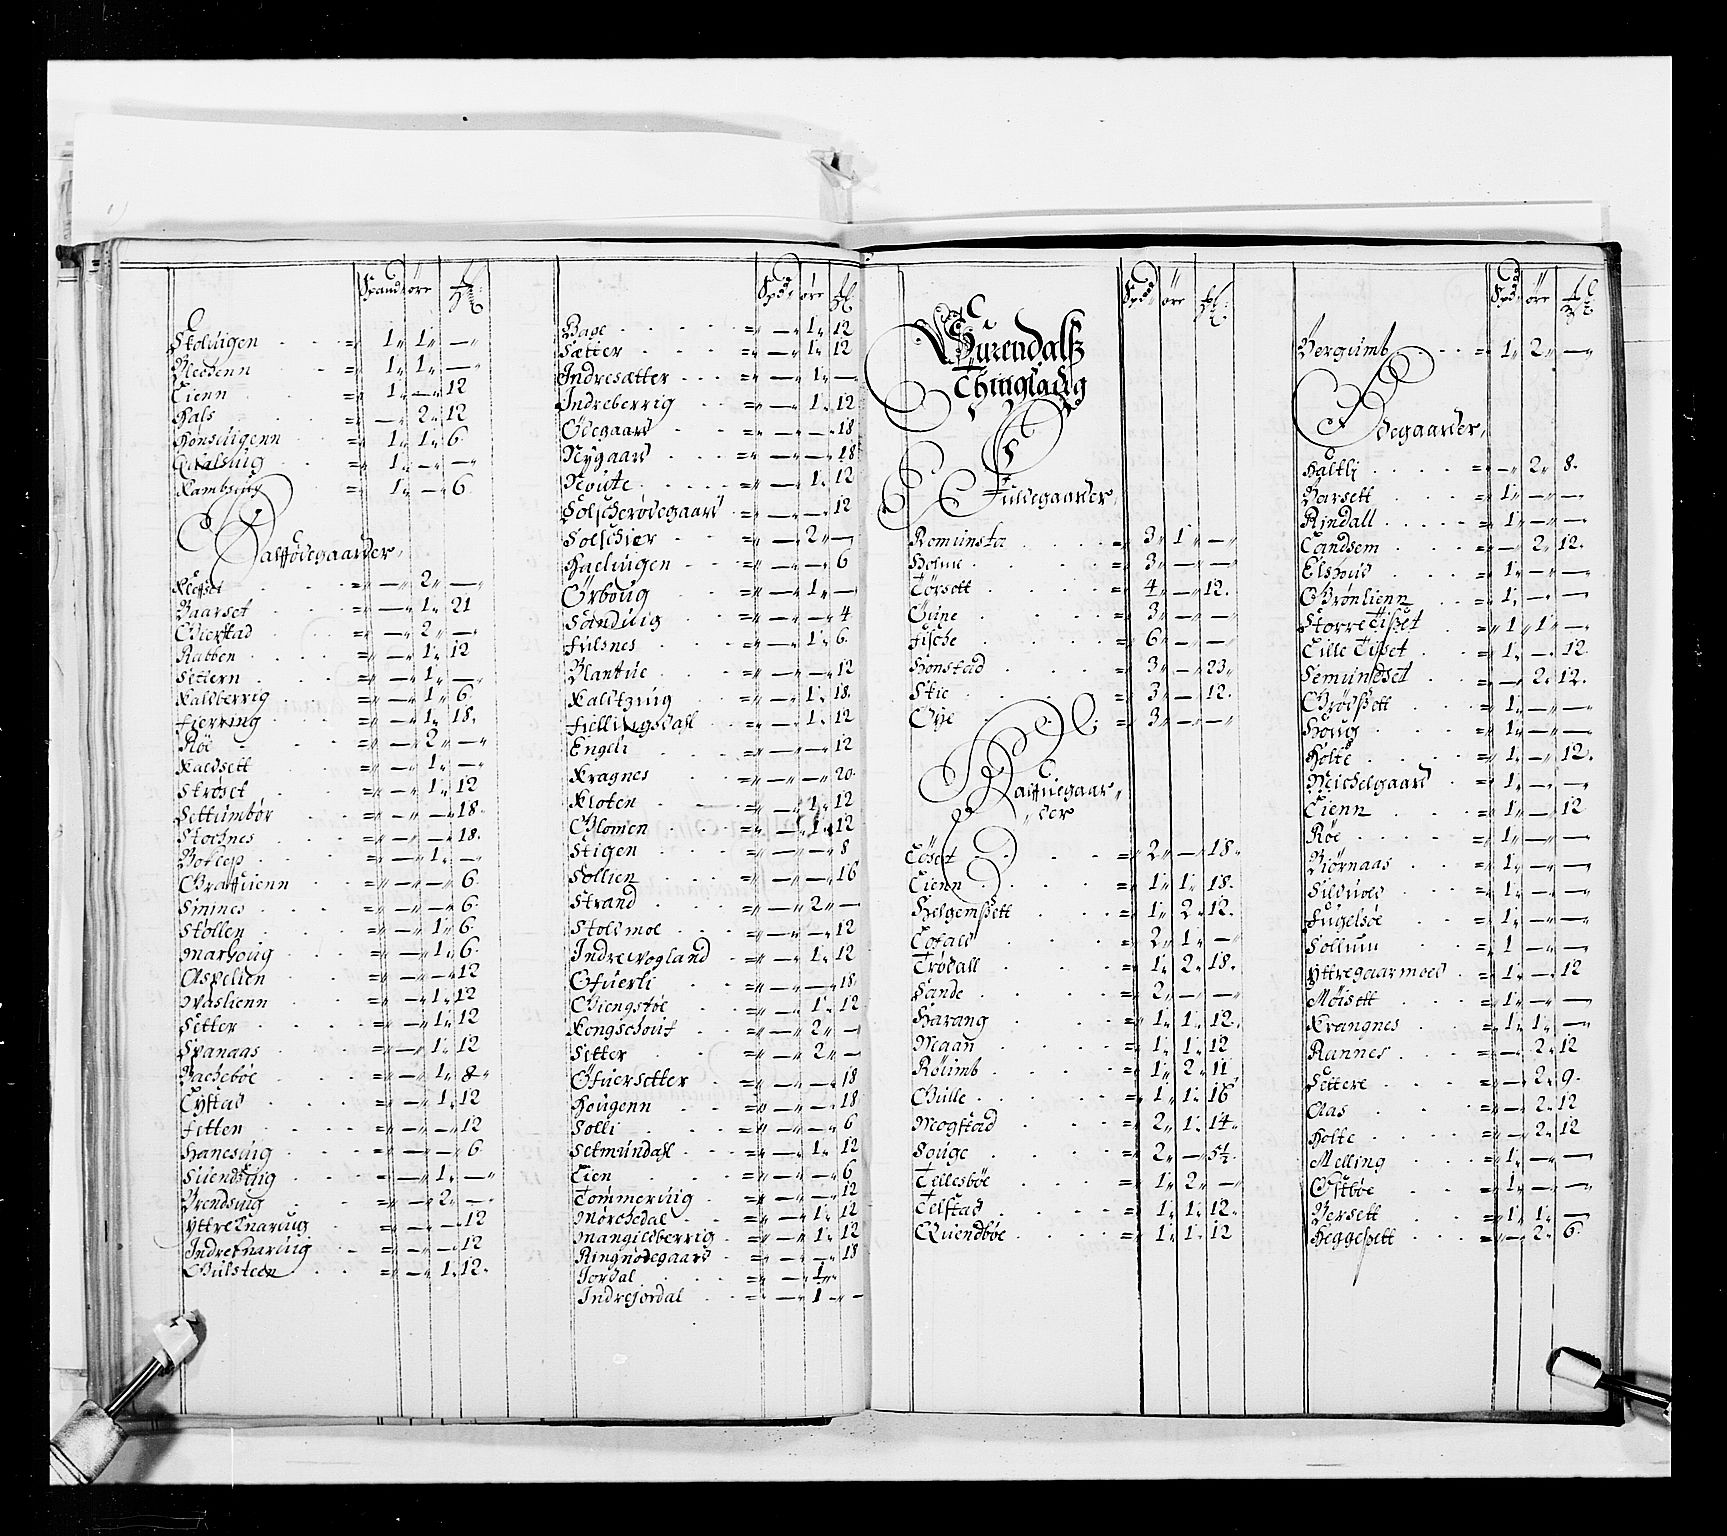 Spand öre
Skoluigen = 1 1 —
Mechenn = 1 1 —
Lienn = 1 — 12
Hals = — 2 12
Hönsuigenn = 1 1 6
Qualsuig = 1 — —
Kambsuig = 1 — 6
Halffödegaarder,
= — 2 —
Baarset = — 1 21
Gierstad = — 2 —
Rabben = — 1 12
Settern = — 1 —
Kaldberrig = — 1 6
Fierring = — 1 18
Röe = — 2 —
Kaldsett = — 1 —
Ströset = — 1 12
Settumbör = — — 18
Stochnes = — — 18
= — 1 —
Graffuienn = — — 6
Sninnes = — — 6
Stollen = — 1 6
Marhoug = — 1 6
Aspelien = — — 12
Waslienn = — 1 12
Setter = — 1 12
Suanaas = — 1 12
Bacheböe = — 1 8
Lystad = — 1 12
Fetten = — — 12
Hanesuig = — — 6
Suendsuig = — 1 —
Brendsuig = — 2 —
Yttre Knaruig = — — 12
Indreknaruig = — — 12
Gulsteen = — 1 12
Spd öre
Bage = — 1 12
Sætter = — 1 12
Indresætter = — 1 —
Indreberrig = — 1 12
Ödegaard = — — 18
Nygaard = — — 18
Noute = — 1 12
Solscherödegaard = — — 12
Solschier = — 2 —
Haeluigen = — — 6
Örboug = — 1 —
Sanduig = — — 4
Fuilsnes = — 1 6
= — — 12
= — 1 18
Fullingsdahl = — 1 12
Engeli = — — 12
Kragnes = — — 20
Kloten = — 1 12
Glomen = — 1 12
Stigen = — — 8
Sollien = — — 16
Strand = — 2 —
Stoldmoe = — — 12
Indrewogland = — 1 12
Ofuerli = — — 18
Giengstöe = — 1 12
Kongschouf = — 2 —
Setter = — 2 —
Öfuersetter = — — 18
Hougenn = — — 18
Solli = — — 6
Setmundahl = — 1 12
Lien = — — 6
Tömmeruig = — — 12
Mörchedal = — 1 12
Mangildberrig = — 1 12
Ringnödegaard = — — 18
Jordal = — 1 —
Indrejordal = — 1 —
Spd öre
Surendalß
Thinglaug
Fuldegaarder,
Romunsta = 3 1 —
Holme = 3 — —
Törsett = 4 — 12
= 3 — —
Fische = 6 — —
Honstad = 3 — 23
Skie = 3 — 12
Öye = 3 — —
Halffuegaar,
der
Löset = 2 — 18
Lienn = 1 1 18
Helgemßett = 1 2 12
Lofald = 2 1 —
Trödall = 1 2 18
Sande = 2 — —
Harang = 1 1 12
Maan = 1 1 12
Rölimb = 1 2 11
Gulle = 1 1 16
Mogstad = 2 1 14
Souge = 2 — 5½
Tellesböe = 1 2 —
Telstad = 1 1 12
Quendböe = 1 1 12
Spd öre
Bergumb = 1 2 —
Ödegaarder,
Haltlj = — 2 8
Barsett = 1 — —
Rindall = 1 — —
Landsem = — 2 12
Elshoud = 1 — —
Grönlienn = 1 — —
Storre Lißet = 1 1 —
Lille Lißet = 1 — 12
Semundset = — 2 12
Grödßett = 1 — —
Houg = 1 — —
Holte = 1 — 12
Meichelgaard = 1 — —
Lienn = 1 — 12
Röe = 1 — —
Biörnaas = 1 — —
Suldvold = 1 — —
Fugelsöe = 1 — —
Sollum = 1 — —
Yttregaarmoed = 1 — 12
Möisett = 1 — —
Krangnes = 1 1 —
Rannes = — 2 12
Settere = — 2 9
Aas = — 2 12
Holte = — 2 12
Melling = 1 — —
Östböe = 1 — —
Bersett = 1 1 —
Heggeßett = — 2 6